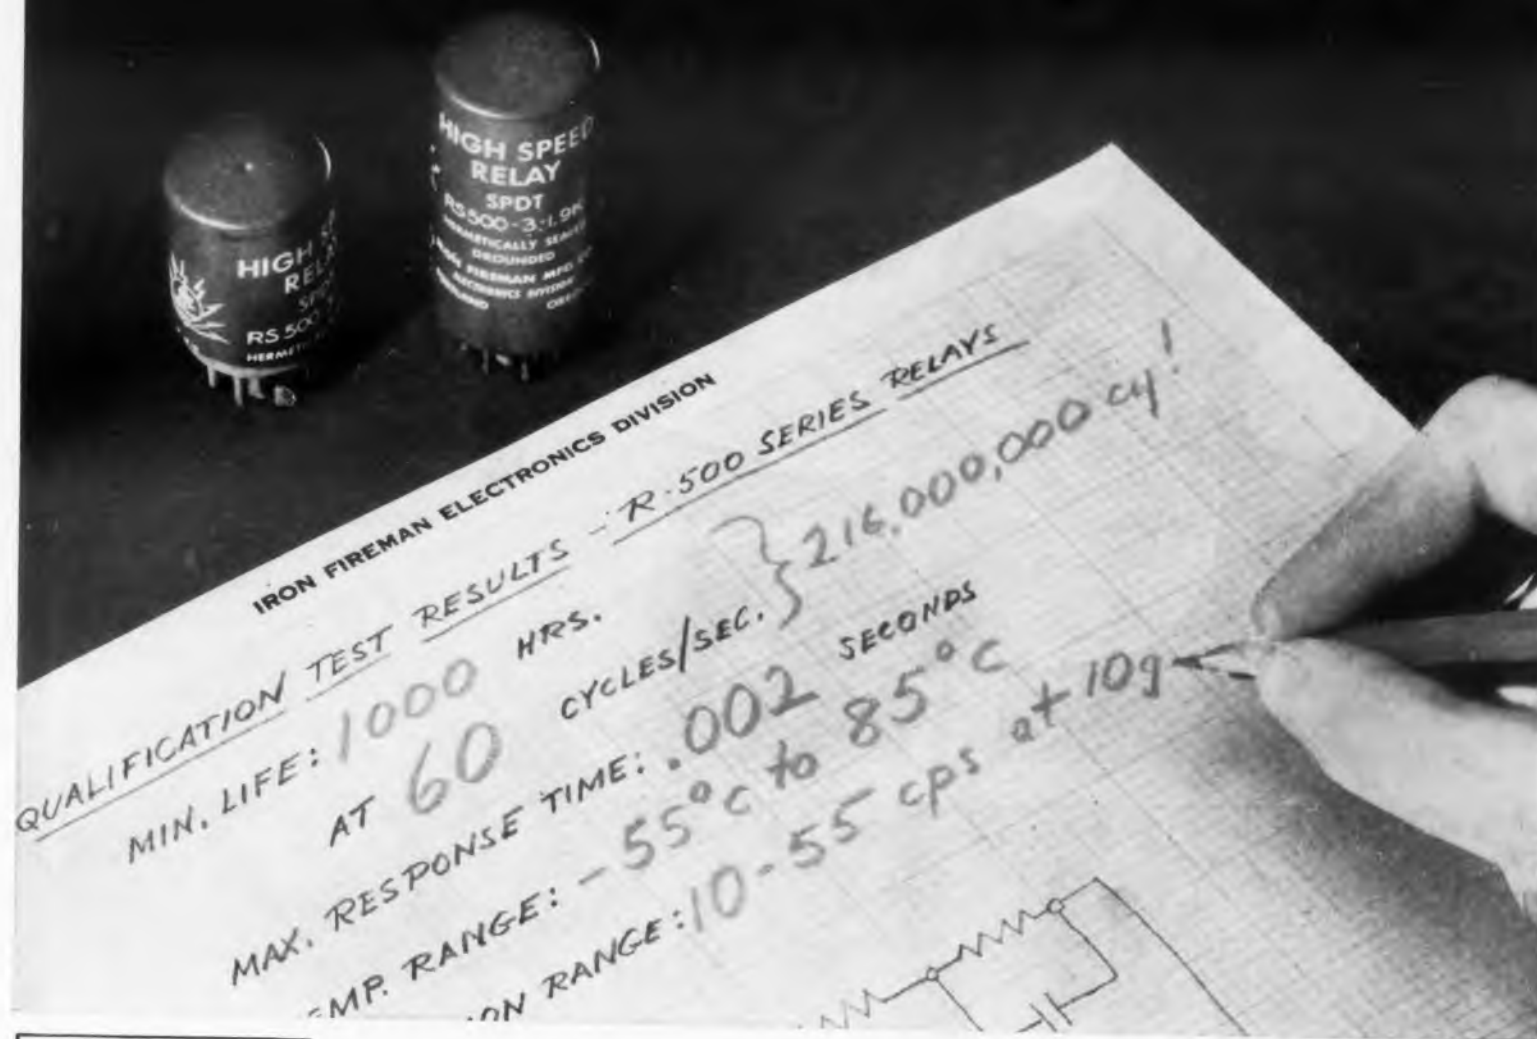 HIGH
RS 500
HIGH SPEED
RELAY
SPDT
RS500-3-1.9K
HERMETICALLY SEALED
GROUNDED
IRON FIREMAN MFG. CO.
ELECTRONICS DIVISION
IRON FIREMAN ELECTRONICS DIVISION
QUALIFICATION TEST RESULTS - R-500 SERIES RELAYS
MIN. LIFE: 1000 HRS.
AT 60 CYCLES/SEC. } 216,000,000 cy!
MAX. RESPONSE TIME: .002 SECONDS
EMP. RANGE: -55°C to 85°C
ION RANGE: 10-55 cps at 10g